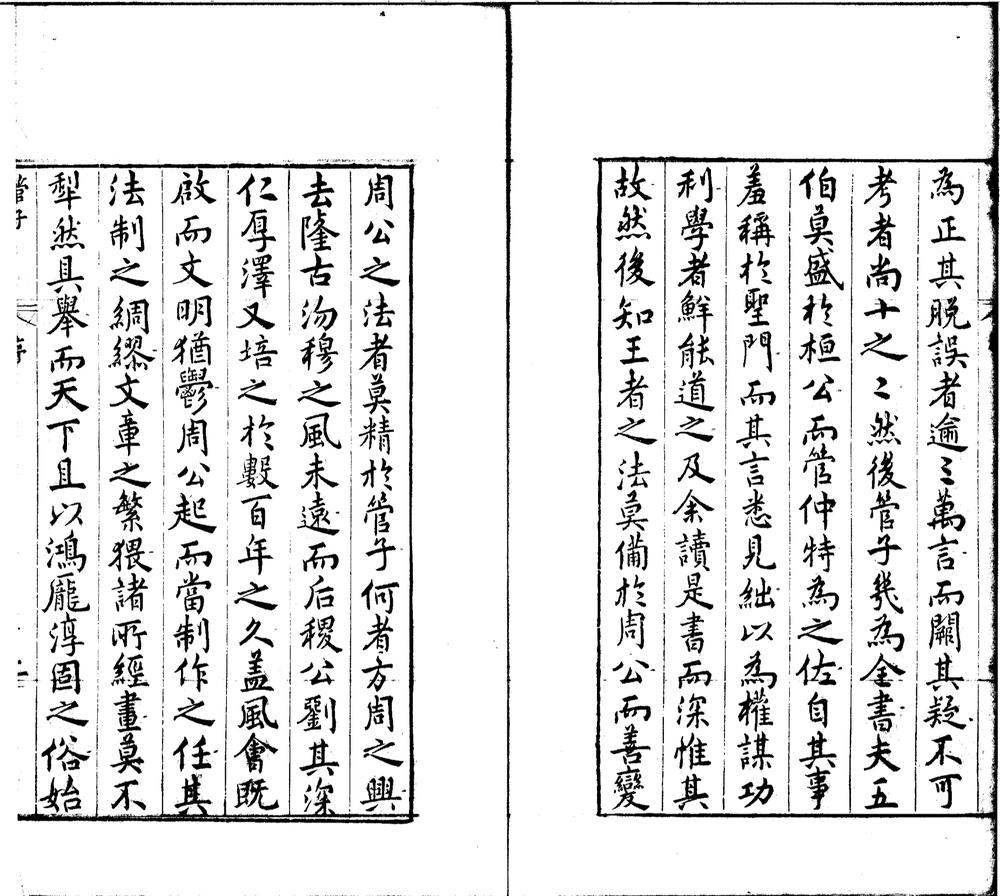 為正其脱誤者逾三萬言而闕其疑不可
考者尚十之二然後管子幾為全書夫五
伯莫盛於桓公而管仲特為之佐自其事
羞稱於聖門而其言悉見絀以為權謀功
利學者鮮能道之及余讀是書而深惟其
故然後知王者之法莫備於周公而善變
周公之法者莫精於管子何者方周之興
去隆古沕穆之風未遠而后稷公劉其深
仁厚澤又培之於數百年之久盖風會既
啟而文明猶鬱周公起而當制作之任其
法制之綢繆文章之繁猥諸所經畫莫不
犁然具舉而天下且以鴻龐淳固之俗始
管子